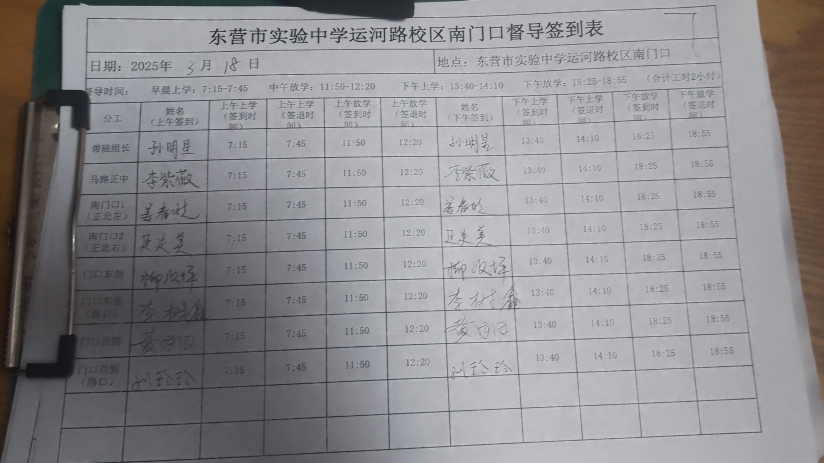 东营市实验中学运河路校区南门口督导签到表
日期：2025年 3 月 18 日 地点：东营市实验中学运河路校区南门口
督导时间： 早晨上学：7:15-7:45 中午放学：11:50-12:20 下午上学：13:40-14:10 下午放学：18:25-18:55 （合计工时2小时）
分工 姓名（上午签到） 上午上学（签到时间） 上午上学（签退时间） 上午放学（签到时间） 上午放学（签退时间） 姓名（下午签到） 下午上学（签到时间） 下午上学（签退时间） 下午放学（签到时间） 下午放学（签退时间）
带班组长 孙明星 7:15 7:45 11:50 12:20 孙明星 13:40 14:10 18:25 18:55
马路正中 李紫薇 7:15 7:45 11:50 12:20 李紫薇 13:40 14:10 18:25 18:55
南门口1（正北左） 7:15 7:45 11:50 12:20 13:40 14:10 18:25 18:55
南门口2（正北右） 7:15 7:45 11:50 12:20 13:40 14:10 18:25 18:55
门口东侧 7:15 7:45 11:50 12:20 13:40 14:10 18:25 18:55
门口东侧（路口） 李树鑫 7:15 7:45 11:50 12:20 李树鑫 13:40 14:10 18:25 18:55
门口西侧 7:15 7:45 11:50 12:20 13:40 14:10 18:25 18:55
门口西侧（路口） 刘玲玲 7:15 7:45 11:50 12:20 刘玲玲 13:40 14:10 18:25 18:55